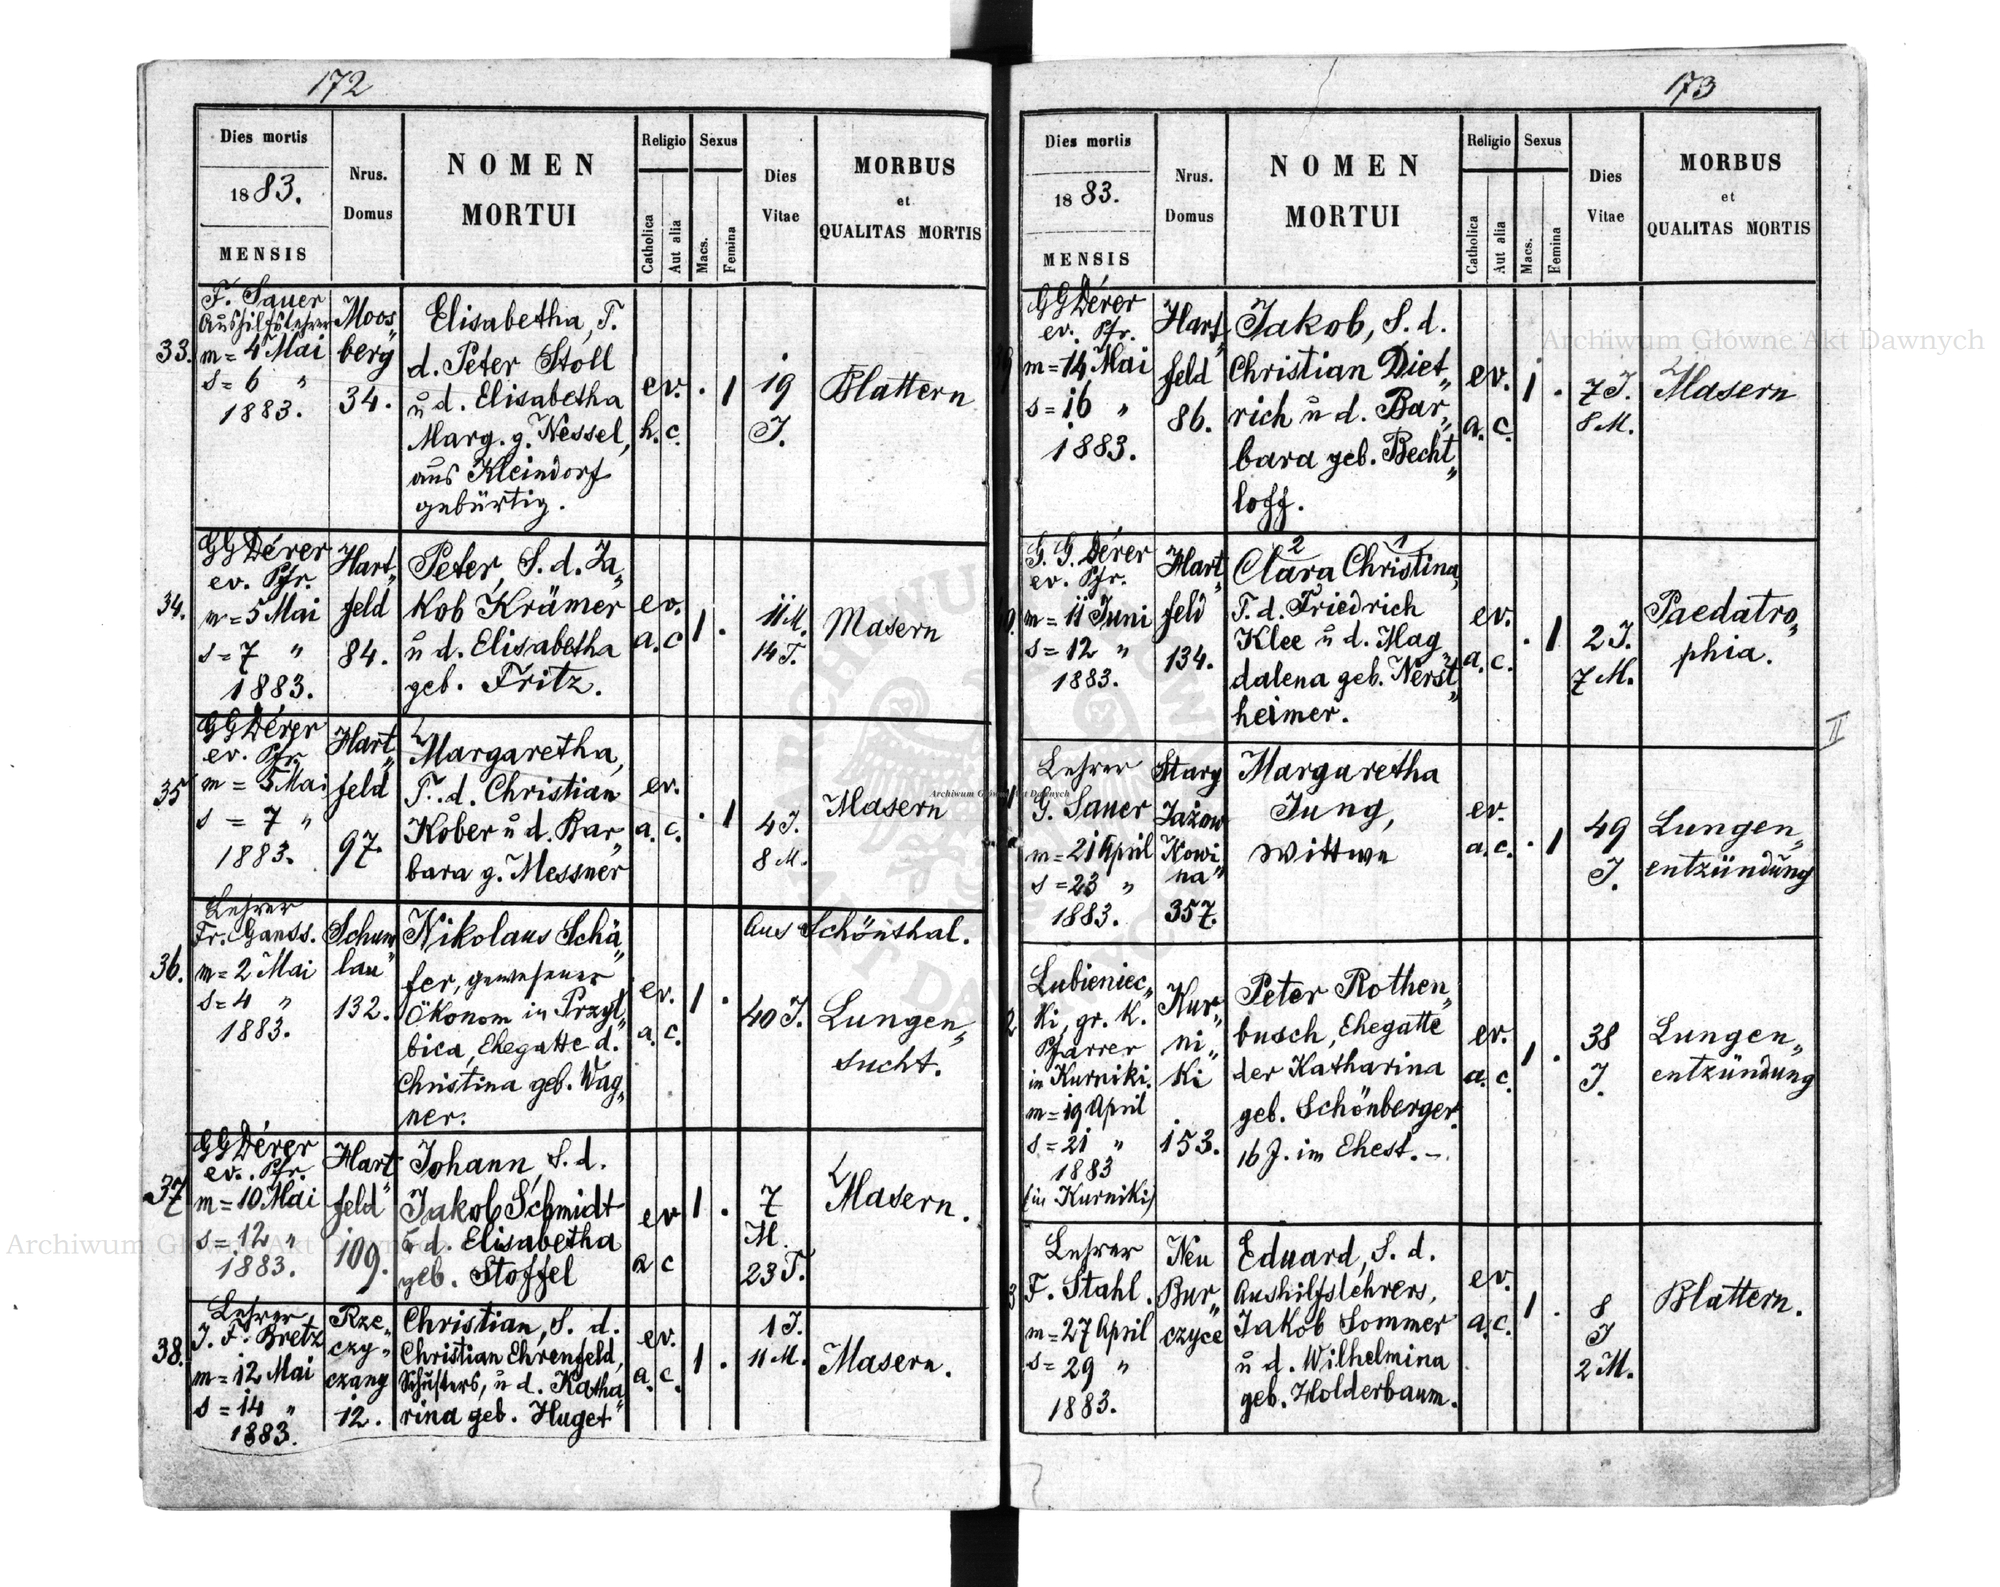 172
Dies mortis
1883.
MENSIS
Nrus.
Domus
NOMEN
MORTUI
Religio
Catholica
Aut alia
Sexus
Macs.
Femina
Dies
Vitae
MORBUS
et
QUALITAS MORTIS
33.
F. Sauer
Aushilfslehrer
m = 4 Mai
s = 6 "
1883.
Moos„
berg
34.
Elisabetha, T.
d. Peter Stoll
u d. Elisabetha
Marg. g. Nessel,
aus Kleindorf
gebürtig.
ev.
h. c.
. 1
19
J.
Blattern
34.
GG Dérer
ev. Pfr.
m = 5 Mai
s = 7 "
1883.
Hart„
feld
84.
Peter, S. d. Ja„
kob Krämer
u d. Elisabetha
geb. Fritz.
ev.
a. c
1 .
11 M.
14 T.
Masern
35
GG Dérer
ev. Pfr.
m = 5 Mai
s = 7 "
1883.
Hart„
feld
97.
Margaretha,
T. d. Christian
Kober u d. Bar„
bara g. Messner
ev.
a. c.
. 1
4 J.
8 M.
Masern
36.
Lehrer
Fr. Ganss.
m = 2 Mai
s = 4 "
1883.
Schum„
lau
132.
Nikolaus Schä„
fer, gewesener
Ökonom in Przył„
bica, Ehegatte d.
Christina geb. Wag„
ner.
ev.
a. c.
1 .
aus Schönthal.
40 J.
Lungen„
sucht.
37
GG Dérer
ev. Pfr.
m = 10 Mai
s = 12 "
1883.
Hart„
feld
109.
Johann, S. d.
Jakob Schmidt
u d. Elisabetha
geb. Stoffel
ev
a c
1 .
7
M.
23 T.
Masern.
38.
Lehrer
J. F. Bretz
m = 12 Mai
s = 14 "
1883.
Rze„
czy„
czang
12.
Christian, S. d.
Christian Ehrenfeld,
Schusters, u d. Katha„
rina geb. Huget
ev.
a. c.
1 .
1 J.
11 M.
Masern.
173
Dies mortis
1883.
MENSIS
Nrus.
Domus
NOMEN
MORTUI
Religio
Catholica
Aut alia
Sexus
Macs.
Femina
Dies
Vitae
MORBUS
et
QUALITAS MORTIS
GG Dérer
ev. Pfr.
m = 14 Mai
s = 16 "
1883.
Hart„
feld
86.
Jakob, S. d.
Christian Diet„
rich u d. Bar„
bara geb. Becht„
loff.
ev.
a. c.
1 .
7 J.
8 M.
Masern
G. G. Dérer
ev. Pfr.
m = 11 Juni
s = 12 "
1883.
Hart„
feld
134.
2 1
Clara Christina,
T. d. Friedrich
Klee u d. Mag„
dalena geb. Nerst„
heimer.
ev.
a. c.
. 1
2 J.
7 M.
Paedatro„
phia.
II
Lehrer
G. Sauer
m = 21 April
s = 23 "
1883.
Starg
Jażow
Nowi„
na
357.
Margaretha
Jung,
Wittwe
ev.
a. c.
. 1
49
J.
Lungen„
entzündung
2
Lubieniec„
ki, gr. k.
Pfarrer
in Kurniki.
m = 19 April
s = 21 "
1883
(in Kurniki)
Kur„
ni„
ki
153.
Peter Rothen„
busch, Ehegatte
der Katharina
geb. Schönberger.
16 J. im Ehest. –
ev.
a. c.
1 .
38
J.
Lungen„
entzündung
3
Lehrer
F. Stahl.
m = 27 April
s = 29 "
1883.
Neu
Bur„
czyce
Eduard, S. d.
Aushilfslehrers,
Jakob Sommer
u d. Wilhelmina
geb. Holderbaum.
ev.
a. c.
1 .
8
J
2 M.
Blattern.
Archiwum Główne Akt Dawnych
Archiwum Główne Akt Dawnych
Archiwum Główne Akt Dawnych
ARCHIWUM GŁÓWNE AKT DAWNYCH